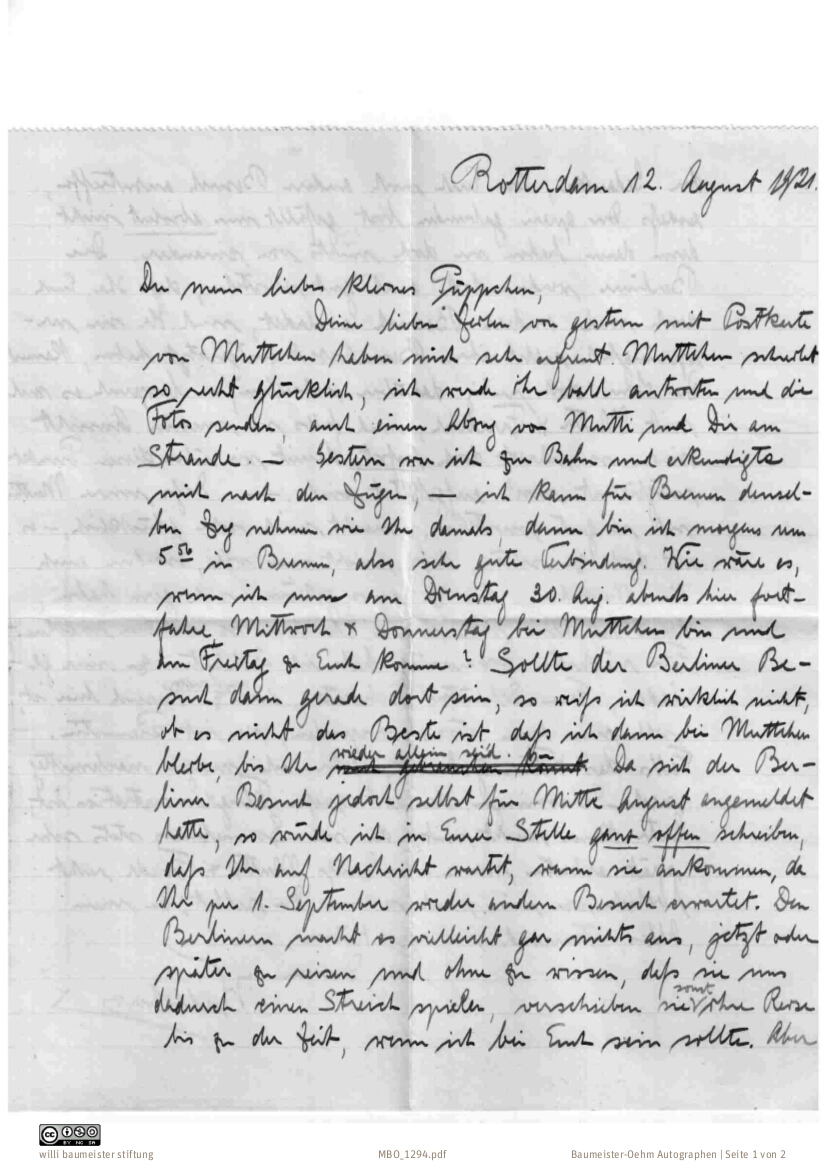 Rotterdam 12. August 1921.
Du mein liebes kleines Püppchen,
Deine lieben Zeilen von gestern mit Postkarte
von Muttchen haben mich sehr erfreut. Muttchen schreibt
so recht glücklich, ich werde ihr bald antworten und die
Fotos senden, auch einen Abzug von Mutti und Dir am
Strande. — Gestern war ich zur Bahn und erkundigte
mich nach den Zügen, — ich kann für Bremen densel-
ben Zug nehmen wie Ihr damals, dann bin ich morgens um
5 56 in Bremen, also sehr gute Verbindung. Wie wäre es,
wenn ich nun am Dienstag 30. Aug. abends hier fort-
fahre, Mittwoch & Donnerstag bei Muttchen bin und
am Freitag zu Euch komme? Sollte der Berliner Be-
such dann gerade dort sein, so weiß ich wirklich nicht,
ob es nicht das Beste ist, daß ich dann bei Muttchen
bleibe, bis Ihr wieder allein seid. Da sich der Ber-
liner Besuch jedoch selbst für Mitte August angemeldet
hatte, so würde ich in Eurer Stelle ganz offen schreiben,
daß Ihr auf Nachricht wartet, wann sie ankommen, da
Ihr per 1. September wieder andern Besuch erwartet. Den
Berlinern macht es vielleicht gar nichts aus, jetzt oder
später zu reisen und ohne zu wissen, daß sie uns
dadurch einen Streich spielen, verschieben sie sonst ihre Reise
bis zu der Zeit, wenn ich bei Euch sein sollte. Aber
willi baumeister stiftung
MBO_1294.pdf
Baumeister-Oehm Autographen | Seite 1 von 2